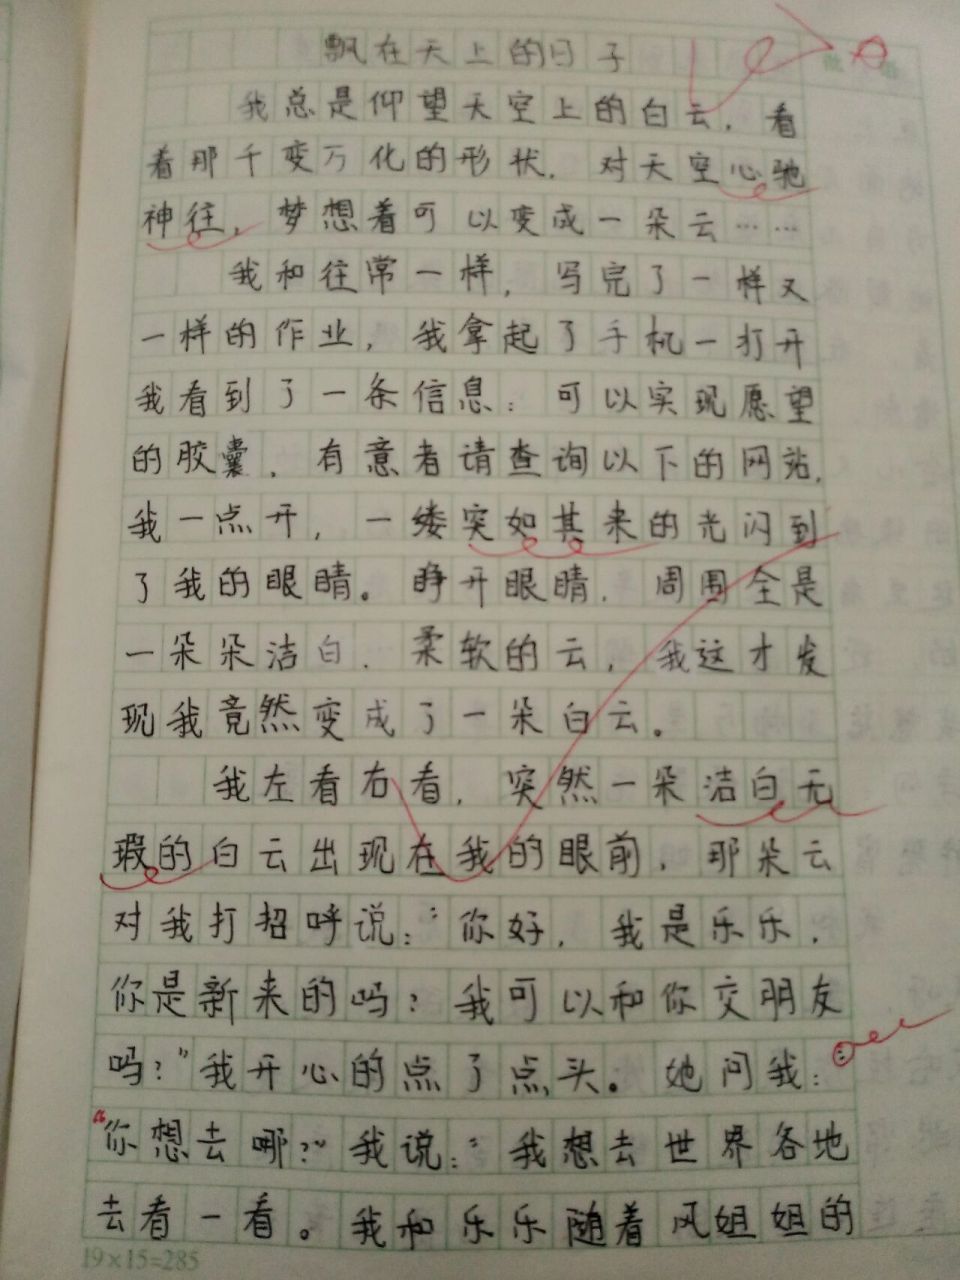 飘在天上的日子
我总是仰望天空上的白云，看
着那千变万化的形状，对天空心驰
神往，梦想着可以变成一朵云……
我和往常一样，写完了一样又
一样的作业，我拿起了手机一打开
我看到了一条信息：可以实现愿望
的胶囊，有意者请查询以下的网站，
我一点开，一缕突如其来的光闪到
了我的眼睛。睁开眼睛，周围全是
一朵朵洁白、柔软的云，我这才发
现我竟然变成了一朵白云。
我左看右看，突然一朵洁白无
瑕的白云出现在我的眼前，那朵云
对我打招呼说：“你好，我是乐乐，
你是新来的吗？我可以和你交朋友
吗？”我开心的点了点头。她问我：
“你想去哪？”我说：“我想去世界各地
去看一看。我和乐乐随着风姐姐的
19×15=285